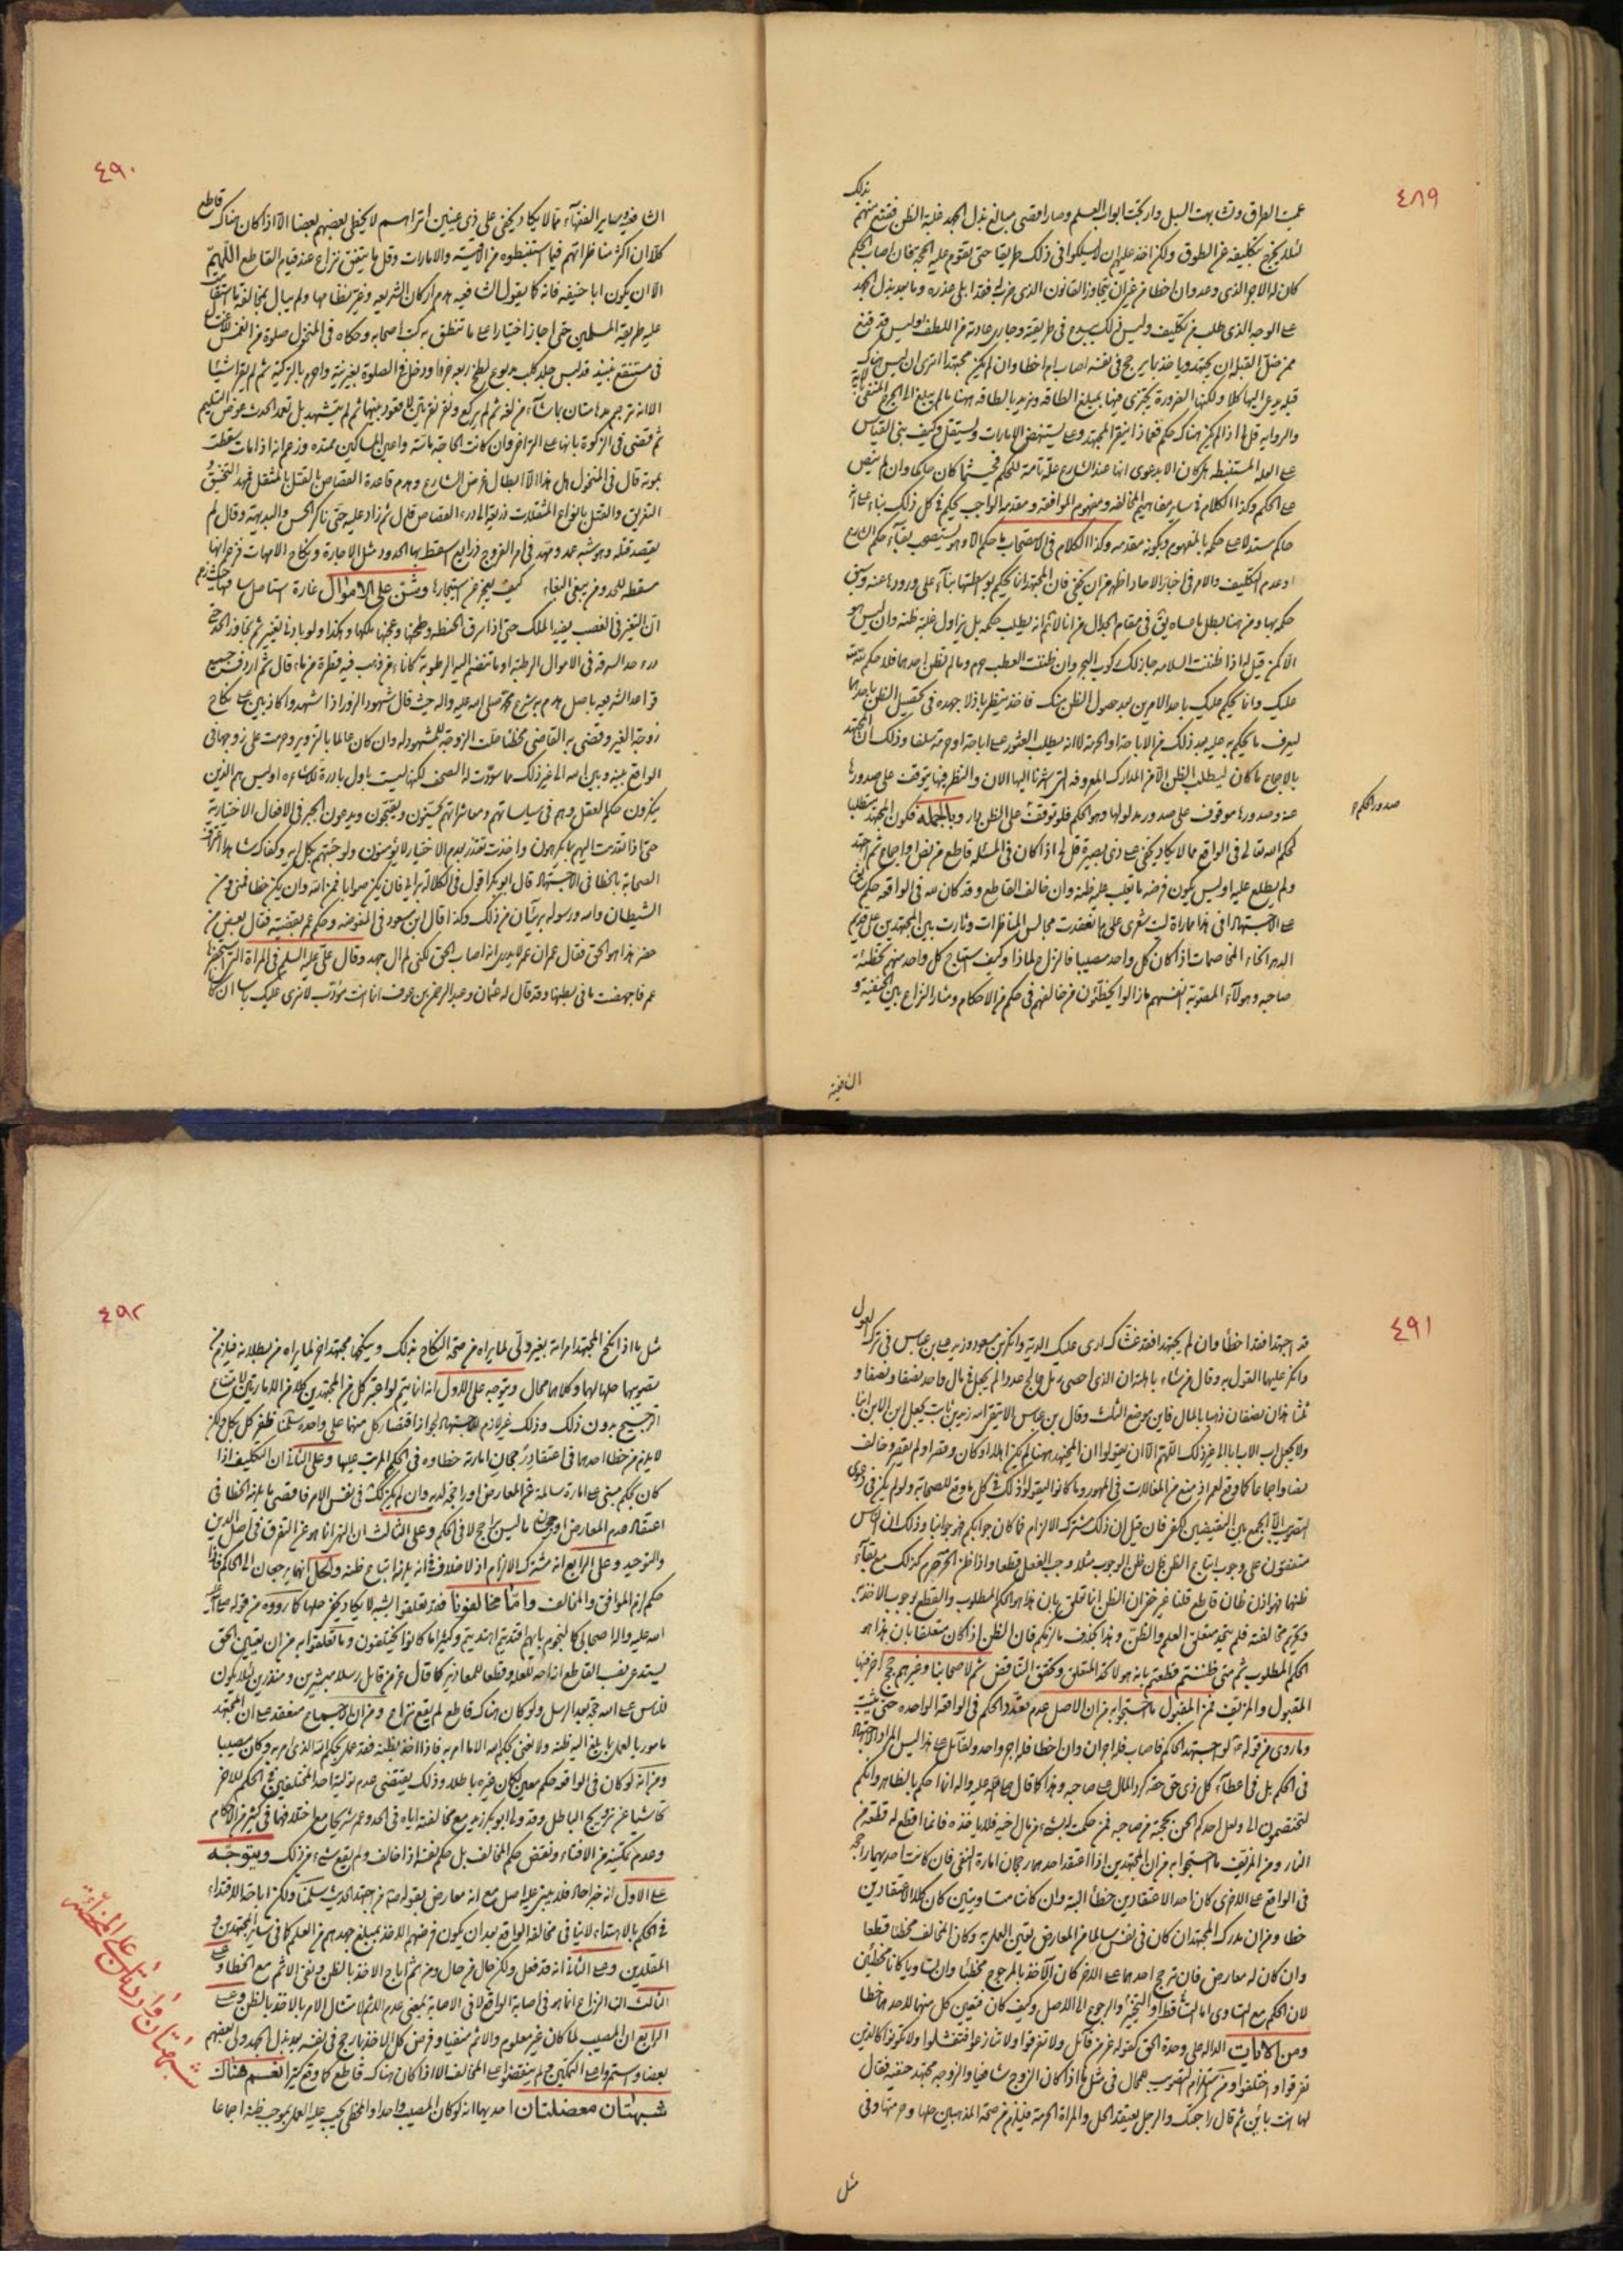 ٤٨٩
عميت الطرق وتشابهت السبل وارتجت ابواب العلم وصار اقصى مبالغ بذل الجهد غلبة الظن فقنع منهم
بذلك
لئلا يخرج بتكليفه عن الطوق ولكن اخذ عليهم ان يسلكوا في ذلك طريقا حتى تقوم عليه الحجة فان اصاب الحكم
كان له الاجر الذي وعد وان اخطا من غير ان يتجاوز القانون الذي ضرب له فقد ابلى عذره وما بعد بذل الجهد
على الوجه الذي طلب من تكليف وليس ذلك ببدع في طريقته وجاري عادته من اللطف اوليس قد قنع
ممن ضل القبلة ان يجتهد وياخذ بما يرجح في نفسه اصاب ام اخطا وان لم يكن مجتهدا
والرواية قل لي اذا لم يكن هناك حكم فماذا يبتغي المجتهد وعلى م يستنهض الامارات ويستقل وكيف بنى القياس
على العلة المستنبطة
على الحكم وكذا الكلام في ساير مفاهيم المخالفة ومفهوم الموافقة ومقدمة الواجب يحكم في كل ذلك بناء على انه
حاكم مستدلا على حكمه بالمفهوم وبكونه مقدمة وكذا الكلام في الاستصحاب
او عدم التكليف والامر في اخبار الاحاد اظهر من ان يخفى فان المجتهد انما يحكم بواسطتها بناء على ورودها عنه وسبق
حكمه بها ومن هنا بطل ما عساه يق في مقام الجدال من انا لا نم انه يطلب حكمه بل يزاول غلبة ظنه وان ليس هو
الا كمن قيل له اذا ظننت السلامة جاز لك ركوب البحر وان ظننت العطب حرم وما لم تظن احدهما فلا حكم لله
عليك وانما يحكم عليك باحد الامرين بعد حصول الظن منك فاخذ ينظر باذلا جهده في تحصيل الظن باحدهما
ليعرف ما يحكم به عليه بعد ذلك من الاباحة او الحرمة لا انه يطلب العثور على اباحة او حرمة سلفا وذلك ان المجتهد
بالاجماع ما كان ليطلب الظن الا من المدارك المعروفة التي اشرنا اليها الان والنظر فيها يتوقف على صدورها
عنه وصدورها موقوف على صدور مدلولها وهو الحكم فلو توقفت على الظن دار وبالجملة فكون المجتهد متطلبا
صدور الحكم
لحكم الله تعالى في الواقع مما لا يكاد يخفى على ذي بصيرة قل لي اذا كان في المسئلة قاطع من نص او اجماع ثم اجتهد
ولم يطلع عليه اوليس يكون فرضه ما يغلب عليه ظنه وان خالف القاطع وقد كان لله في الواقعة حكم
على الاجتهاد افي هذا مماراة ليت شعري علام انعقدت مجالس المناظرات وثارت بين المجتهدين على قديم
الدهر انحاء المخاصمات اذا كان كل واحد مصيبا فالنزاع لماذا وكيف استباح كل واحد منهم تخطئة
صاحبه وهؤلاء المصوبة انفسهم ما زالوا يخطئون من خالفهم في حكم من الاحكام ومثار النزاع بين الحنفية و
الشافعية
٤٩٠
الشافعية وساير الفقهاء مما لا يكاد يخفى على ذي عينين اتراهم لا يخطي بعضهم بعضا الا اذا كان هناك قاطع
كلا ان اكثر مناظراتهم فيما استنبطوه من الاقيسة والامارات وقل ما يتفق نزاع عند قيام القاطع اللهم
الا ان يكون ابا حنيفة فانه كما يقول الشافعية هدم اركان الشريعة وغير نظامها ولم يبال بمخالفة ما استقل
عليه طريقة المسلمين حتى اجاز اختيارا على ما تنطق به كتب اصحابه وحكاه في المنخول صلوة من انغمس
في مستنقع نبيذ قد لبس جلد كلب مدبوغ لطخ ربعه خرءا ودخل في الصلوة بغير نية واحرم بالتركية ثم لم يقرا شيئا
ثم قضى في الزكوة بانها على التراخي وان كانت الحاجة ماسة واعين المساكين ممتدة وزعم انه اذا مات سقطت
بموته قال في المنخول هل هذا الا ابطال غرض الشارع وهدم قاعدة القصاص بالقتل بالمثقل فمهد التخنيق و
التغريق والقتل بانواع المثقلات ذريعة الى درء القصاص قال ثم زاد عليه حتى ناكر الحس والبديهة وقال لم
يقصد قتله وهو شبه عمد ومهد في امر الفروج ذرايع اسقط بها الحدود مثل الاجارة ونكاح الامهات فزعم انها
مسقطة للحد ومن يبغي البغاء كيف يعجز عن استيجارها وشن على الاموال غارة استاصل بها فهمها حيث زعم
ان التغير في الغصب يفيد الملك حتى اذا سرق الحنطة وطحنها وعجنها ملكها وهكذا ولو بادنى تغيير ثم تجاوز الحد حتى
درء حد السرقة في الاموال الرطبة او ما تنضم اليه الرطوبة كاناء من ذهب فيه قطرة من ماء قال ثم اردف جميع
قواعد الشريعة باصل هدم به شرع محمد صلى الله عليه واله حيث قال شهود الزور اذا شهدوا كاذبين على نكاح
زوجة الغير وقضى به القاضي مخطئا حلت الزوجة للمشهود له وان كان عالما بالتزوير وحرمت على زوجها في
الواقع بينه وبين الله الى غير ذلك مما سودت له الصحف لكنها ليست باول بادرة للاشاعرة اوليس هم الذين
ينكرون حكم العقل وهم في سياساتهم ومعاشراتهم يحسنون ويقبحون ويدعون الجبر في الافعال الاختيارية
حتى اذا تقدمت اليهم بما يكرهون واخذت تعتذر بعدم الاختيار لا يؤمنون ولو جئتهم بكل اية وكفاك شاهدا اعتراف
الصحابة بالخطا في الاجتهاد قال ابو بكر اقول في الكلالة برايي فان يكن صوابا فمن الله وان يكن خطا فمني ومن
الشيطان والله ورسوله بريئان من ذلك وكذا قال ابن مسعود في المفوضة وحكم عمر بقضية فقال بعض من
حضر هذا هو الحق فقال عمر ان عمر لا يدري انه اصاب الحق لكني لم ال جهدا وقال علي عليه السلم في المراة التي استحضرها
عمر فاجهضت ما في بطنها وقد قال له عثمان وعبد الرحمن بن عوف انما انت مؤدب لا نرى عليك باسا ان كانا
٤٩١
قد اجتهدا فقد اخطأ وان لم يجتهدا فقد غشاك ارى عليك الدية وانكر بن مسعود وزيد على بن عباس في ترك العول
وانكر عليهما القول به وقال من شاء باهلته ان الذي احصى رمل عالج عددا لم يجعل في مال واحد نصفا ونصفا و
ثلثا هذان نصفان ذهبا بالمال فاين موضع الثلث وقال بن عباس الا يتقي الله زيد بن ثابت يجعل ابن الابن ابنا
ولا يجعل اب الاب ابا الى غير ذلك اللهم الا ان يقولوا ان المجتهد ههنا لم يكن اهلا او كان وقصر او لم يقصر وخالف
نصا واجماعا كما وقع لعمر اذ منع من المغالات في المهور وما كانوا ليقولوا ذلك في كل ما وقع للصحابة ولو لم يكن في دعوى
التصويب الا الجمع بين النقيضين لكفى فان قيل ان ذلك مشترك الالزام فما كان جوابكم فهو جوابنا وذلك ان الناس
متفقون على وجوب اتباع الظن فان ظن الوجوب مثلا وجب الفعل قطعا واذا ظن الحرمة حرم كذلك مع بقاء
ظنهما فهو اذن ظان قاطع قلنا غير خفي ان الظن انما تعلق بان هذا هو الحكم المطلوب والقطع بوجوب الاخذ به
وتحريم مخالفته فلم يتحد متعلق العلم والظن وهذا بخلاف ما لزمكم فان الظن اذا كان متعلقا بان هذا هو
الحكم المطلوب ثم متى ظننتم قطعتم بانه هو لا كذا اتحد المتعلق وتحقق التناقض ثم لاصحابنا وغيرهم حجج اخر فيها
المقبول والمزيف فمن المقبول ما احتجوا به من ان الاصل عدم تعدد الحكم في الواقعة الواحدة حتى يثبت
وما روي من قوله ص لو اجتهد الحاكم فاصاب فله اجران وان اخطا فله اجر واحد ولقائل على هذا ليس المراد الاجتهاد
في الحكم بل في اعطاء كل ذي حق حقه كرد المال على صاحبه وهذا كما قال صلى الله عليه واله انما احكم بالظاهر وانكم
لتختصمون الي ولعل احدكم الحن بحجته من صاحبه فمن حكمت له بشيء من مال اخيه فلا ياخذه فانما اقطع له قطعة من
النار ومن المزيف ما احتجوا به من ان المجتهدين اذا اعتقد احدهما رجحان امارة النفي فان كانت احديهما راجحة
في الواقع على الاخرى كان احد الاعتقادين خطأ البتة وان كانت متساويتين كان كلا الاعتقادين
خطا ومن ان مدرك المجتهد ان كان في نفسه سالما من المعارض تعين العمل به وكان المخالف مخطئا قطعا
وان كان له معارض فان ترجح احدهما على الاخر كان الاخذ بالمرجوح مخطئا وان تساويا كانا مخطئين
لان الحكم مع التساوي اما التساقط او التخيير والرجوع الى الاصل وكيف كان فتعيين كل منهما لاحدهما خطا
ومن الايات الدالة على وحدة الحق كقوله عز من قائل ولا تفرقوا ولا تنازعوا فتفشلوا ولا تكونوا كالذين
تفرقوا واختلفوا ومن استلزام التصويب للمحال في مثل ما اذا كان الزوج شافعيا والزوجة مجتهدة حنفية فقال
لها انت باين ثم قال راجعتك والرجل يعتقد الحل والمراة الحرمة فيلزم من صحة المذهبين حلها وحرمتها وفي
مثل
٤٩٢
مثل ما اذا نكح المجتهد امراة بغير ولي لما يراه من صحة النكاح بذلك وينكحها مجتهد اخر لما يراه من بطلانه فيلزم من
تصويبهما حلها لهما وكلاهما محال ويتوجه على الاول انه انما يتم لو اعتبر كل من المجتهدين كلا من الامارتين
الترجيح بدون ذلك وذلك غير لازم للاجتهاد لجواز اقتصار كل منهما على واحدة سلمنا ظفر كل بكل ولكن
لا يلزم من خطا احدهما في اعتقاد رجحان امارته خطاوه في الحكم المرتب عليها وعلى الثاني ان التكليف اذا
كان بحكم مبني على امارة سالمة عن المعارض او راجحة لديه وان لم يكن كك في نفس الامر فاقصى ما يلزمه الخطا في
اعتقاد عدم المعارض او رجحان ما ليس براجح لا في الحكم وعلى الثالث ان النهي انما هو عن التفرق في اصل الدين
والتوحيد وعلى الرابع انه مشترك الالزام اذ لا خلاف في انه يلزمه اتباع ظنه والحل انهما يرجعان الى الحاكم فاذا
حكم لزم الموافق والمخالف واما مخالفونا فقد تعلقوا بشبه لا يكاد يخفى حلها كما رووه من قوله صلى
الله عليه واله اصحابي كالنجوم بايهم اقتديتم اهتديتم وكثيرا ما كانوا يختلفون وما تعلقوا به من ان تعيين الحق
يستدعي نصب القاطع ازاحة للعلة وقطعا للمعاذير كما قال عز من قائل رسلا مبشرين ومنذرين لئلا يكون
للناس على الله حجة بعد الرسل ولو كان هناك قاطع لم يقع نزاع ومن ان الاجماع منعقد على ان المجتهد
مامور بالعمل بما بلغ اليه ظنه ولا نعني بحكم الله الا ما امر به فاذا اخذ بظنه فقد عمل بحكم الله الذي امر به وكان مصيبا
ومن انه لو كان في الواقعة حكم معين لكان غيره باطلا وذلك يقتضي عدم تولية احد المختلفين في الحكم للاخر
تحاشيا عن ترويج الباطل وقد ولى ابو بكر زيدا مع مخالفته اياه في الجد وعمر شريحا مع اختلافهما في كثير من الاحكام
وعدم تمكينه من الافتاء ونقض حكم المخالف بل حكم نفسه اذا خالف ولم يقع شيء من ذلك ويتوجه
على الاول انه خبر احاد فلا يبتنى عليه اصل مع انه معارض بقوله ص من اجتهد الحديث سلمنا ولكن اباحة الاقتداء
في الحكم بالاهتداء لا ينافي مخالفة الواقع بعد ان يكون فرضهم الاخذ بمبلغ جهدهم من العلم كما في ساير المجتهدين و
المقلدين وعلى الثاني انه قد فعل ولكن حال من حال ومن ثم اباح الاخذ بالظن ونفى الاثم مع الخطا وعلى
الثالث ان النزاع انما هو في اصابة الواقع لا في الاصابة بمعنى عدم الاثم لامتثال الامر بالاخذ بالظن وعلى
الرابع ان المصيب لما كان غير معلوم والاثم منفيا وفرض كل الاخذ بما رجح في نفسه بعد بذل الجهد ولى بعضهم
بعضا واستمروا على التمكين ولم ينقضوا على المخالف الا اذا كان هناك قاطع كما وقع كثيرا نعم هناك
شبهتان معضلتان احديهما انه لو كان المصيب واحدا والمخطي يجب عليه العمل بموجب ظنه اجماعا
شبهتان واردتان على المخطئة